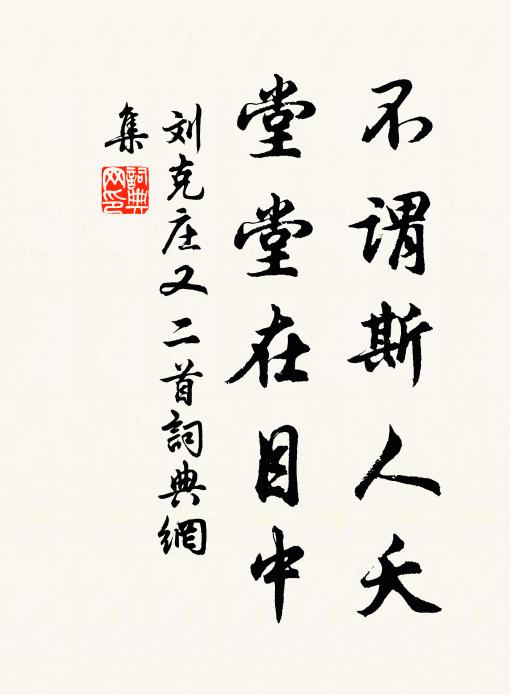 不謂斯人夭
堂堂在目中
刘克庄又二首詞典網
集
詞典网印